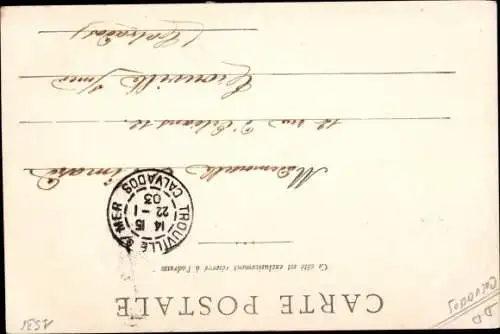 CARTE POSTALE
Ce côté est exclusivement réservé à l'adresse
TROUVILLE S/ MER
14 15
22 - 1
03
CALVADOS
Mademoiselle Simare
12 rue d'Orléans 12.
Trouville s/mer
(Calvados)
CALVADOS